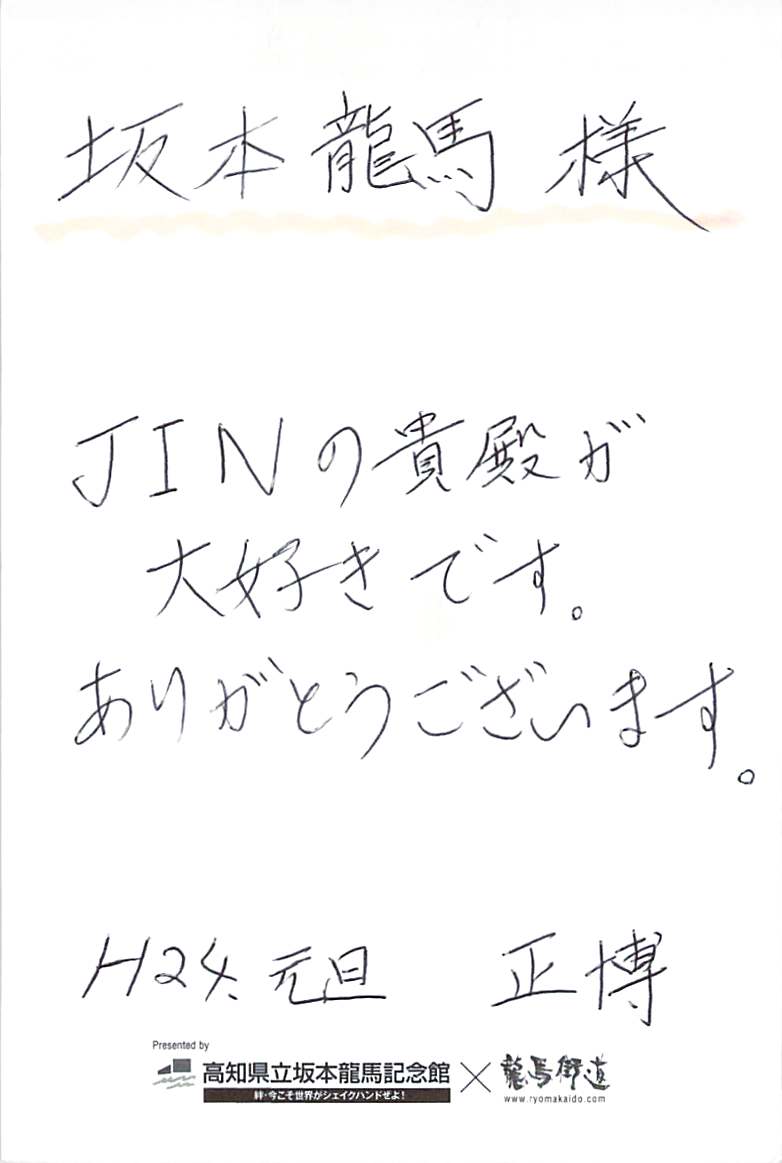 坂本龍馬様
JINの貴殿が
大好きです。
ありがとうございます。
H24.元旦 正博
Presented by
高知県立坂本龍馬記念館×龍馬街道
絆・今こそ世界がシェイクハンドぜよ!
www.ryomakaido.com